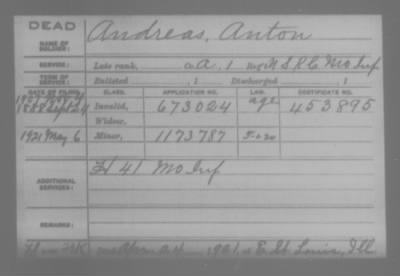 DEAD
NAME OF SOLDIER: Andreas, Anton
SERVICE: Late rank, Co. A, 1 Reg't U S R C Mo Inf
TERM OF SERVICE: Enlisted , 1 Discharged , 1
DATE OF FILING. CLASS. APPLICATION NO. LAW. CERTIFICATE NO.
1888 Sept Invalid, 673024 age 453895
Widow,
1921 May 6 Minor, 1173787
ADDITIONAL SERVICES: H 41 Mo Inf
REMARKS:
1921 at E. St Louis, Ill